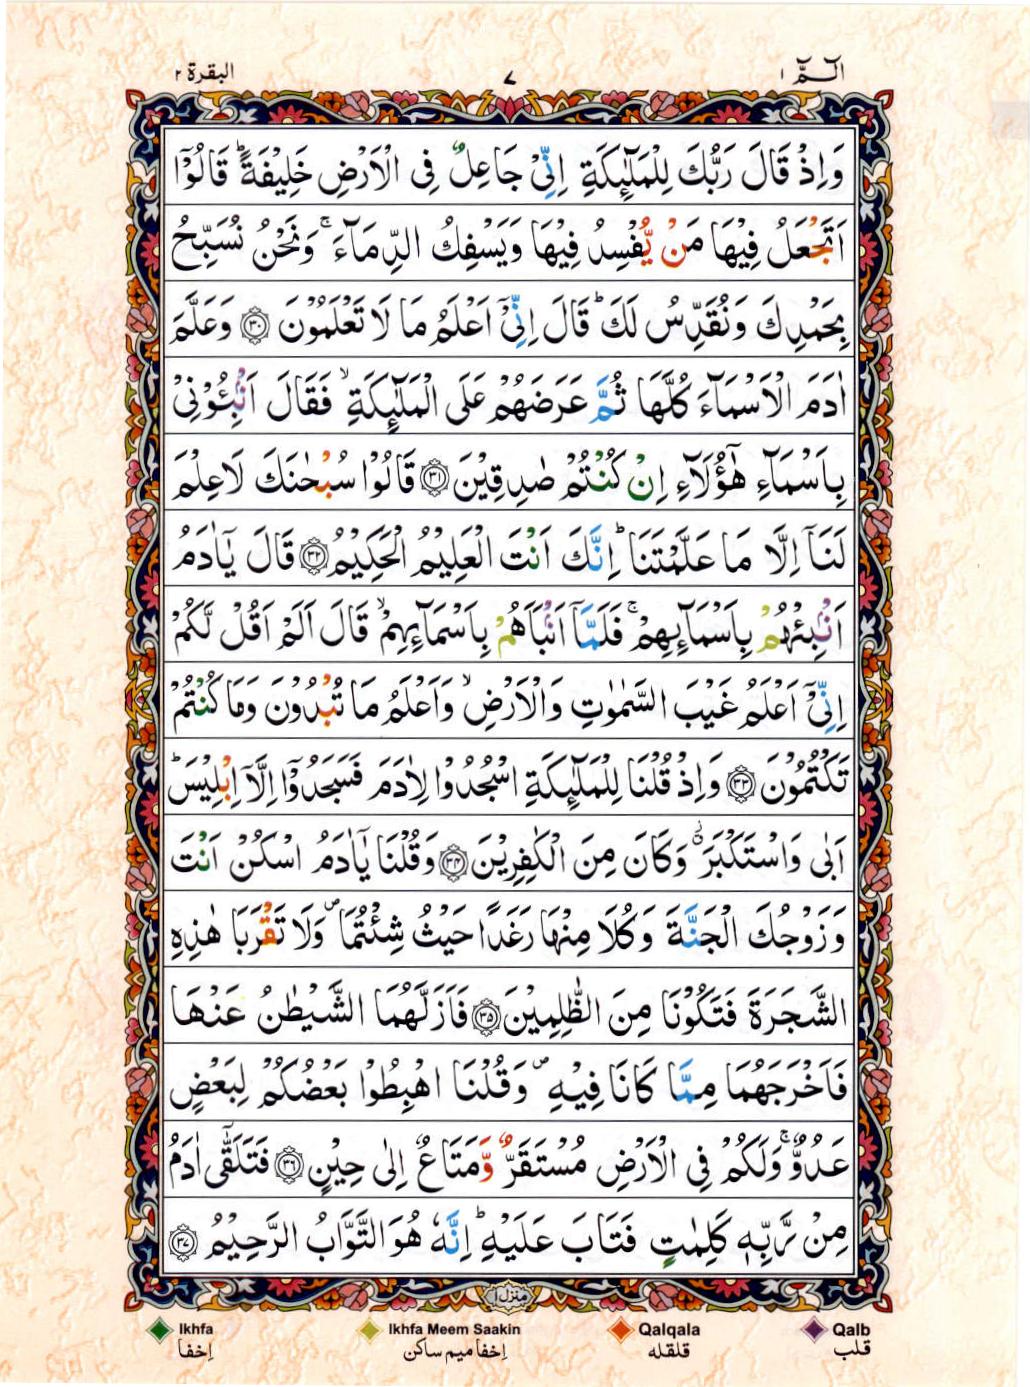 الٓـمّٓ ١ ٧ البقرة ٢
وَاِذْ قَالَ رَبُّكَ لِلْمَلٰٓئِكَةِ اِنِّيْ جَاعِلٌ فِي الْاَرْضِ خَلِيْفَةً ؕ قَالُوْٓا
اَتَجْعَلُ فِيْهَا مَنْ يُّفْسِدُ فِيْهَا وَيَسْفِكُ الدِّمَآءَ ۚ وَنَحْنُ نُسَبِّحُ
بِحَمْدِكَ وَنُقَدِّسُ لَكَ ؕ قَالَ اِنِّيْٓ اَعْلَمُ مَا لَا تَعْلَمُوْنَ ﴿۳۰﴾ وَعَلَّمَ
اٰدَمَ الْاَسْمَآءَ كُلَّهَا ثُمَّ عَرَضَهُمْ عَلَى الْمَلٰٓئِكَةِ ۙ فَقَالَ اَنْۢبِـُٔوْنِيْ
بِاَسْمَآءِ هٰٓؤُلَآءِ اِنْ كُنْتُمْ صٰدِقِيْنَ ﴿۳۱﴾ قَالُوْا سُبْحٰنَكَ لَا عِلْمَ
لَنَآ اِلَّا مَا عَلَّمْتَنَا ؕ اِنَّكَ اَنْتَ الْعَلِيْمُ الْحَكِيْمُ ﴿۳۲﴾ قَالَ يٰٓاٰدَمُ
اَنْۢبِئْهُمْ بِاَسْمَآئِهِمْ ۚ فَلَمَّآ اَنْۢبَاَهُمْ بِاَسْمَآئِهِمْ ۙ قَالَ اَلَمْ اَقُلْ لَّكُمْ
اِنِّيْٓ اَعْلَمُ غَيْبَ السَّمٰوٰتِ وَالْاَرْضِ ۙ وَاَعْلَمُ مَا تُبْدُوْنَ وَمَا كُنْتُمْ
تَكْتُمُوْنَ ﴿۳۳﴾ وَاِذْ قُلْنَا لِلْمَلٰٓئِكَةِ اسْجُدُوْا لِاٰدَمَ فَسَجَدُوْٓا اِلَّآ اِبْلِيْسَ ؕ
اَبٰى وَاسْتَكْبَرَ ۫ وَكَانَ مِنَ الْكٰفِرِيْنَ ﴿۳۴﴾ وَقُلْنَا يٰٓاٰدَمُ اسْكُنْ اَنْتَ
وَزَوْجُكَ الْجَنَّةَ وَكُلَا مِنْهَا رَغَدًا حَيْثُ شِئْتُمَا ۪ وَلَا تَقْرَبَا هٰذِهِ
الشَّجَرَةَ فَتَكُوْنَا مِنَ الظّٰلِمِيْنَ ﴿۳۵﴾ فَاَزَلَّهُمَا الشَّيْطٰنُ عَنْهَا
فَاَخْرَجَهُمَا مِمَّا كَانَا فِيْهِ ۪ وَقُلْنَا اهْبِطُوْا بَعْضُكُمْ لِبَعْضٍ
عَدُوٌّ ۚ وَلَكُمْ فِي الْاَرْضِ مُسْتَقَرٌّ وَّمَتَاعٌ اِلٰى حِيْنٍ ﴿۳۶﴾ فَتَلَقّٰٓى اٰدَمُ
مِنْ رَّبِّهٖ كَلِمٰتٍ فَتَابَ عَلَيْهِ ؕ اِنَّهٗ هُوَ التَّوَّابُ الرَّحِيْمُ ﴿۳۷﴾
منزل ١
Ikhfa Ikhfa Meem Saakin Qalqala Qalb
اخفا اخفا میم ساکن قلقلہ قلب